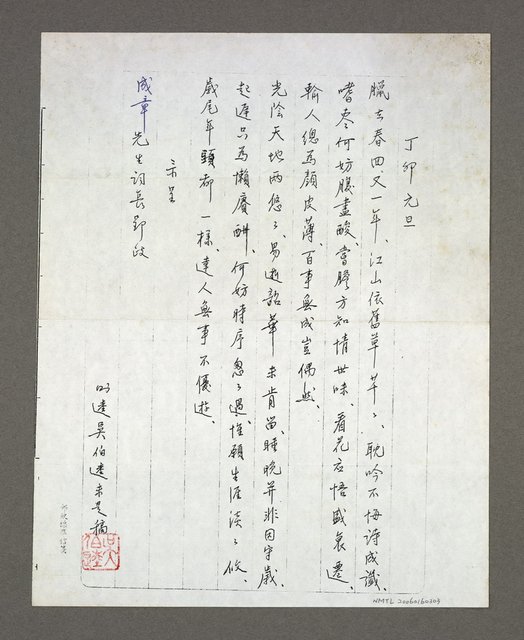 丁卯元旦
臘去春回又一年、江山依舊草芊々、耽吟不悔詩成讖、
嗜棗何妨腹盡酸、嘗膽方知情世味、看花應悟盛衰遷、
輸人總為顏皮薄、百事無成豈偶然、
光陰天地兩悠々、易逝韶華未肯留、睡晚并非因守歲、
起遲只為懶賡酬、何妨時序忽々過、惟願生涯淡々收、
歲尾年頭都一樣、達人無事不優游、
示呈
成章先生詞長郢政
吳伯達未是稿
NMTL 20060160303